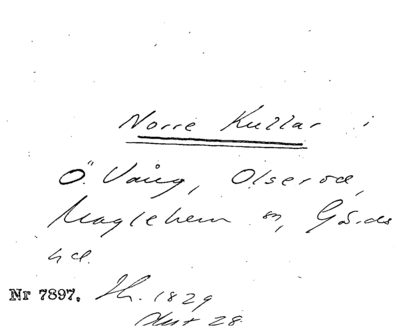 Norre Kullar i
Ö. Vång, Olseröd,
Maglehem sn, Gärds
hd.
Nr 7897. Sk. 1829
Akt 28